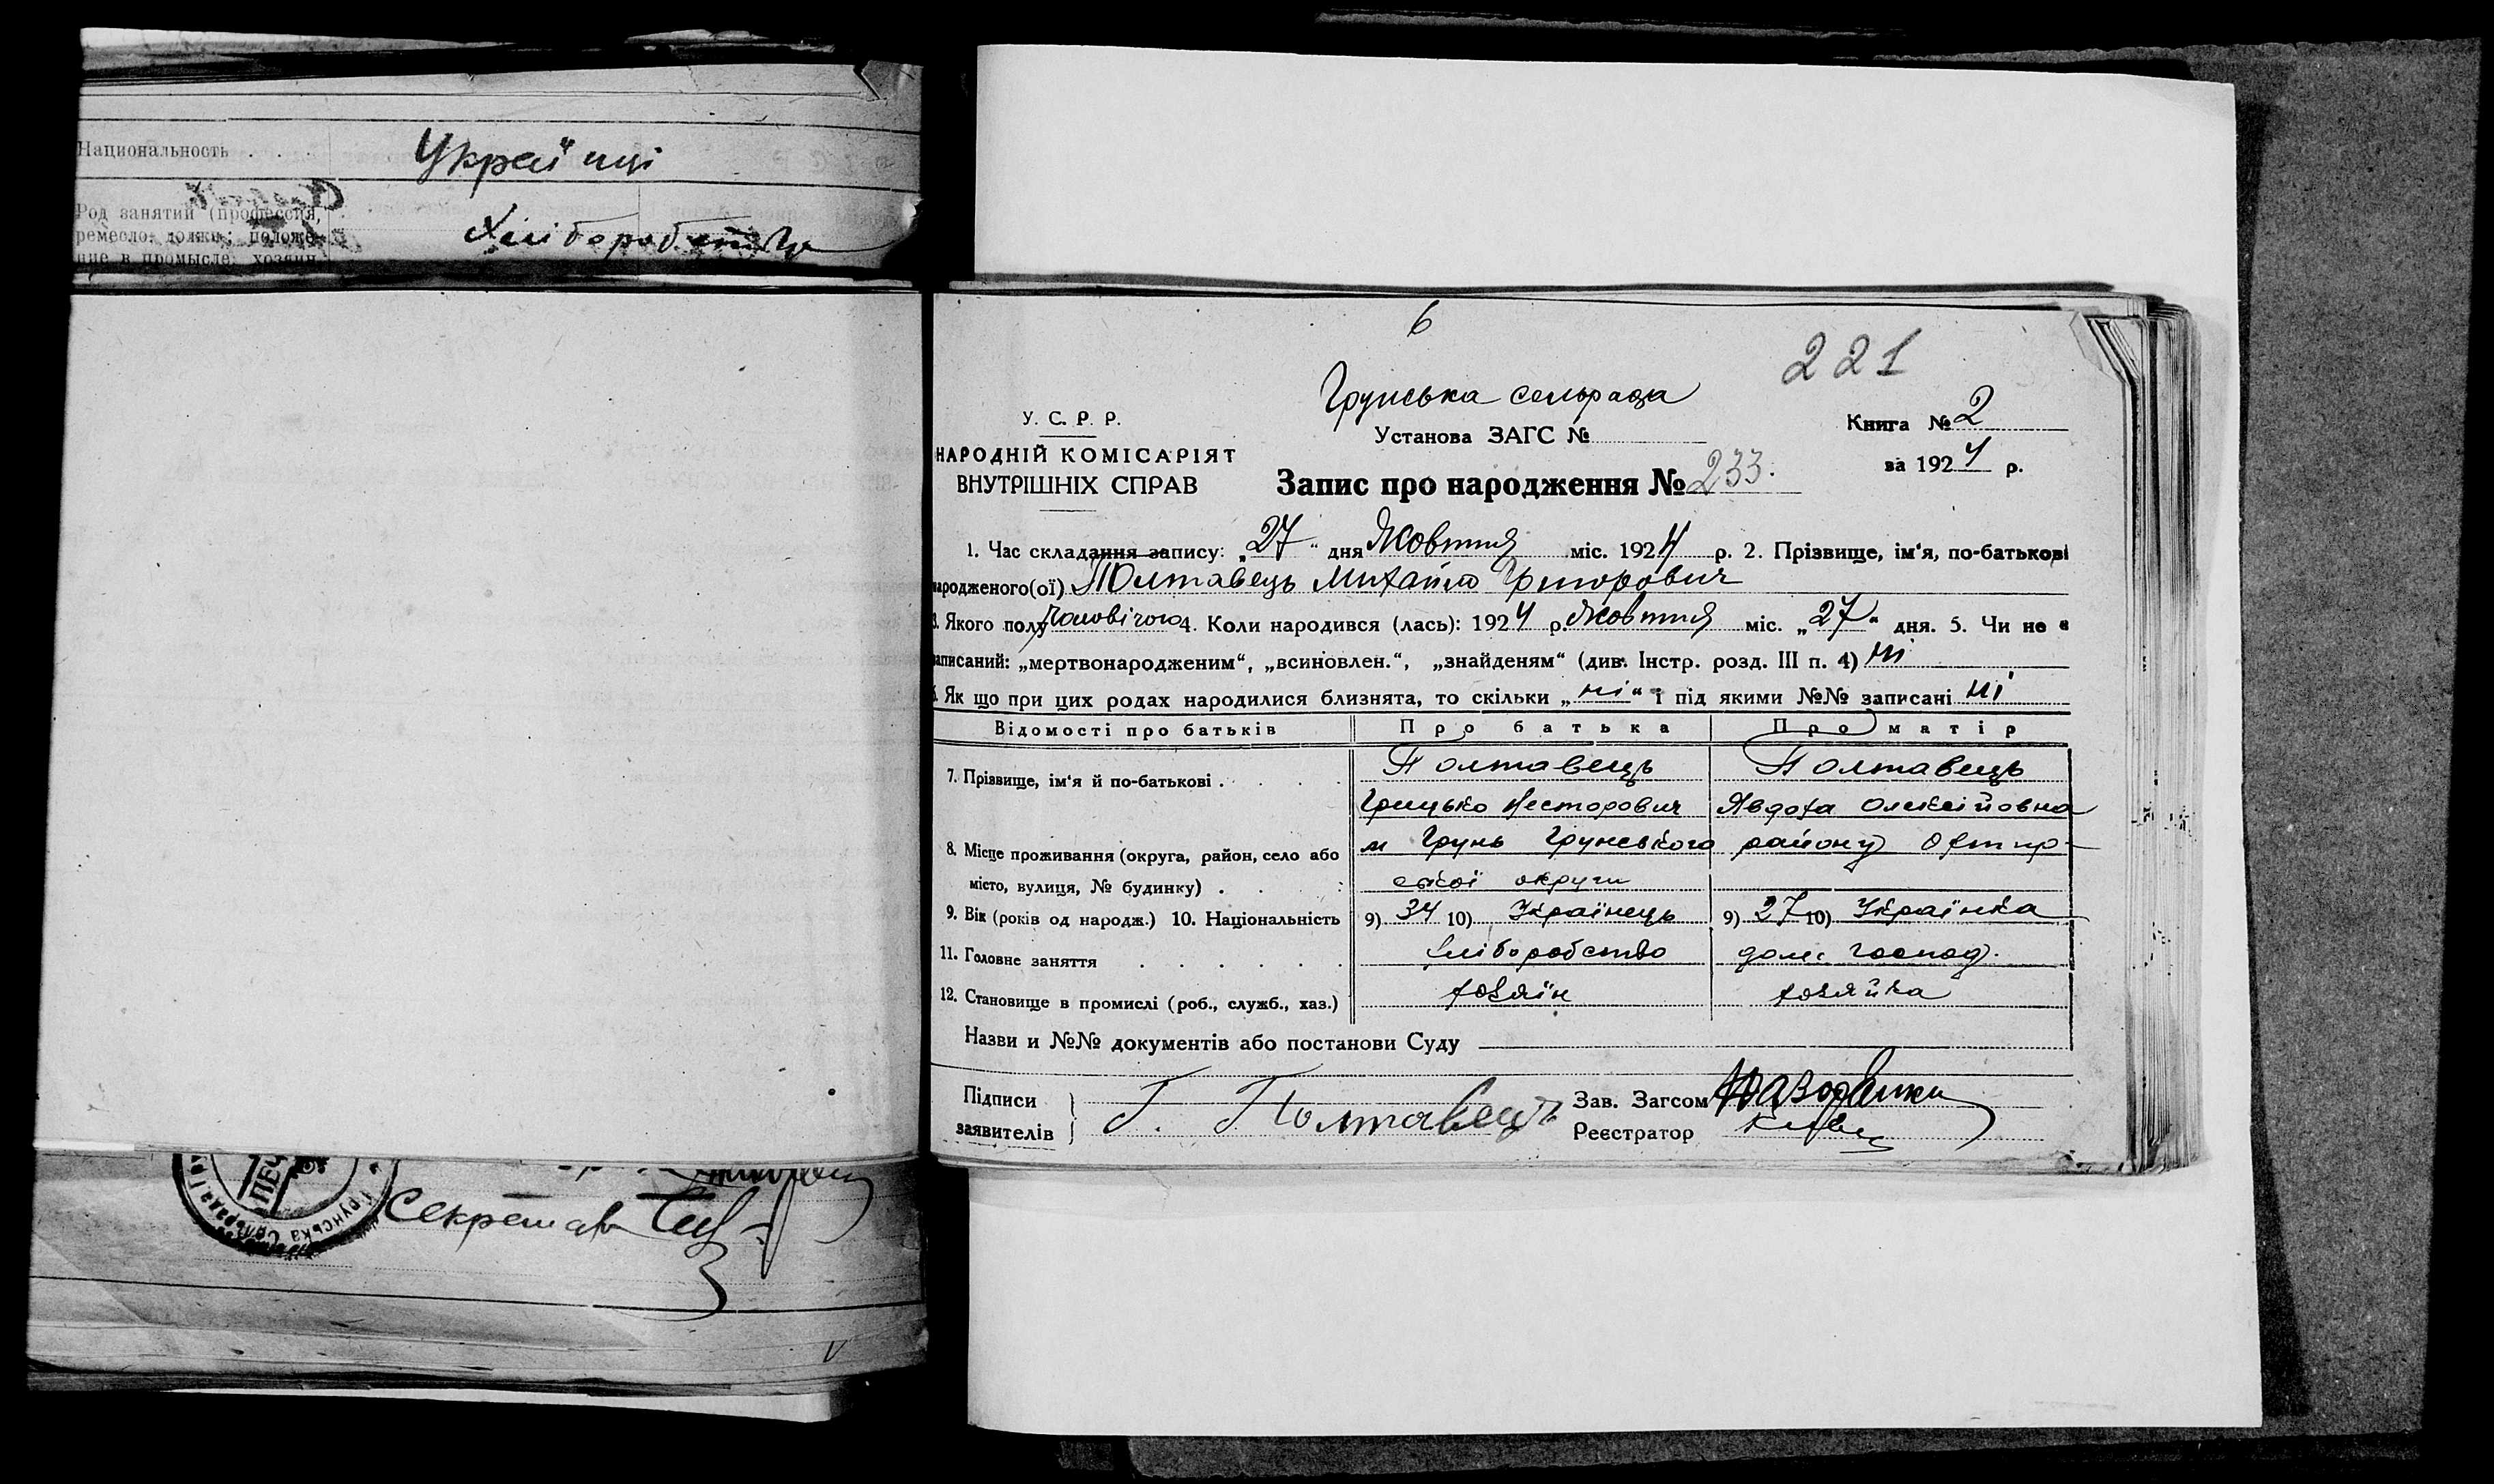 Национальность . . . Україпці
Род занятий (профессия, Хліборобство
ремесло, должн; положе-
ние в промысле, хозяин
6
221
Грунська сельрада
У. С. Р. Р.
Установа ЗАГС №
Книга № 2
НАРОДНІЙ КОМІСАРІЯТ
ВНУТРІШНІХ СПРАВ
за 1924 р.
Запис про народження № 233.
1. Час складання запису: „27“ дня Жовтня міс. 1924 р. 2. Прізвище, ім'я, по-батькові
народженого(ої) Полтавець Михайло Григорович
3. Якого полу Чоловічого 4. Коли народився (лась): 1924 р. Жовтня міс. „27“ дня. 5. Чи не є
записаний: „мертвонародженим“, „всиновлен.“, „знайденям“ (див. Інстр. розд. III п. 4) ні
6. Як що при цих родах народилися близнята, то скільки „ні“ і під якими №№ записані ні
Відомості про батьків Про батька Про матір
7. Прізвище, ім'я й по-батькові . . . . Полтавець Полтавець
Грицько Несторович Явдоха Олексійовна
8. Місце проживання (округа, район, село або м Грунь Грунського району Охтир-
місто, вулиця, № будинку) . . . : ської округи
9. Вік (років од народж.) 10. Національність 9) 34 10) Українець 9) 27 10) Українка
11. Головне заняття . . . . . . хліборобство дом. господ.
12. Становище в промислі (роб., служб., хаз.) хозяїн хозяйка
Назви и №№ документів або постанови Суду
Підписи
заявителів
Г. Полтавець
Зав. Загсом
Реєстратор
ПЕЧ
Грунська Сельрада
Секретар